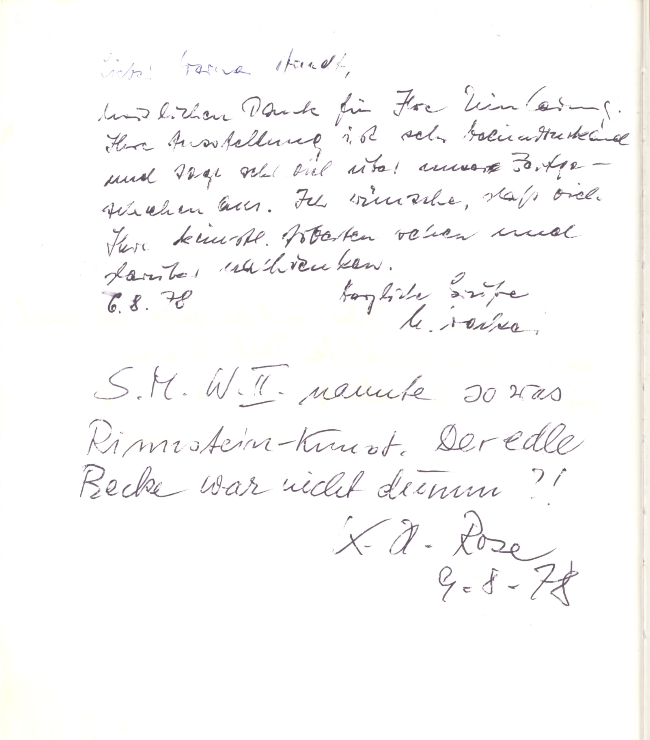 herzlichen Dank für Ihre Einladung.
Ihre Ausstellung ist sehr beeindruckend
und sagt sehr viel über unsere Zeitge-
schehen aus. Ich wünsche, daß viele
Ihre künstl. Arbeiten sehen und
darüber nachdenken.
6.8.78 Herzliche Grüße
S.M. W.II. nannte so was
Rinnstein-Kunst. Der edle
Recke war nicht dumm?!
K. H. Rose
9-8-78